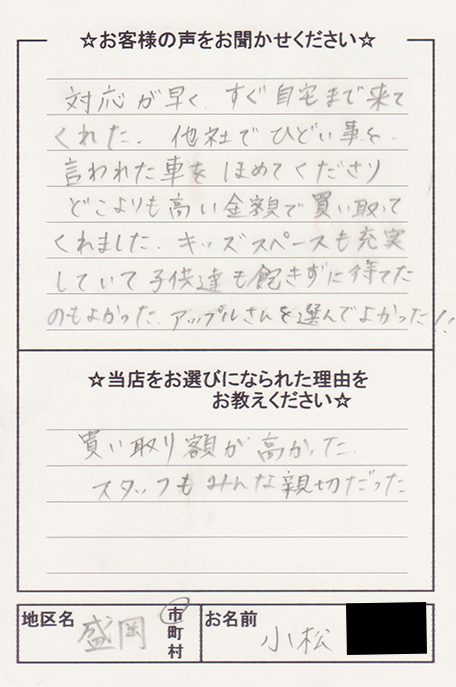 ☆お客様の声をお聞かせください☆
対応が早く すぐ自宅まで来て
くれた。他社でひどい事を
言われた車をほめてくださり
どこよりも高い金額で買い取って
くれました。キッズスペースも充実
していて子供達も飽きずに待てた
のもよかった。アップルさんを選んでよかった!!
☆当店をお選びになられた理由を
お教えください☆
買い取り額が高かった。
スタッフもみんな親切だった
地区名 盛岡 市町村 お名前 小松